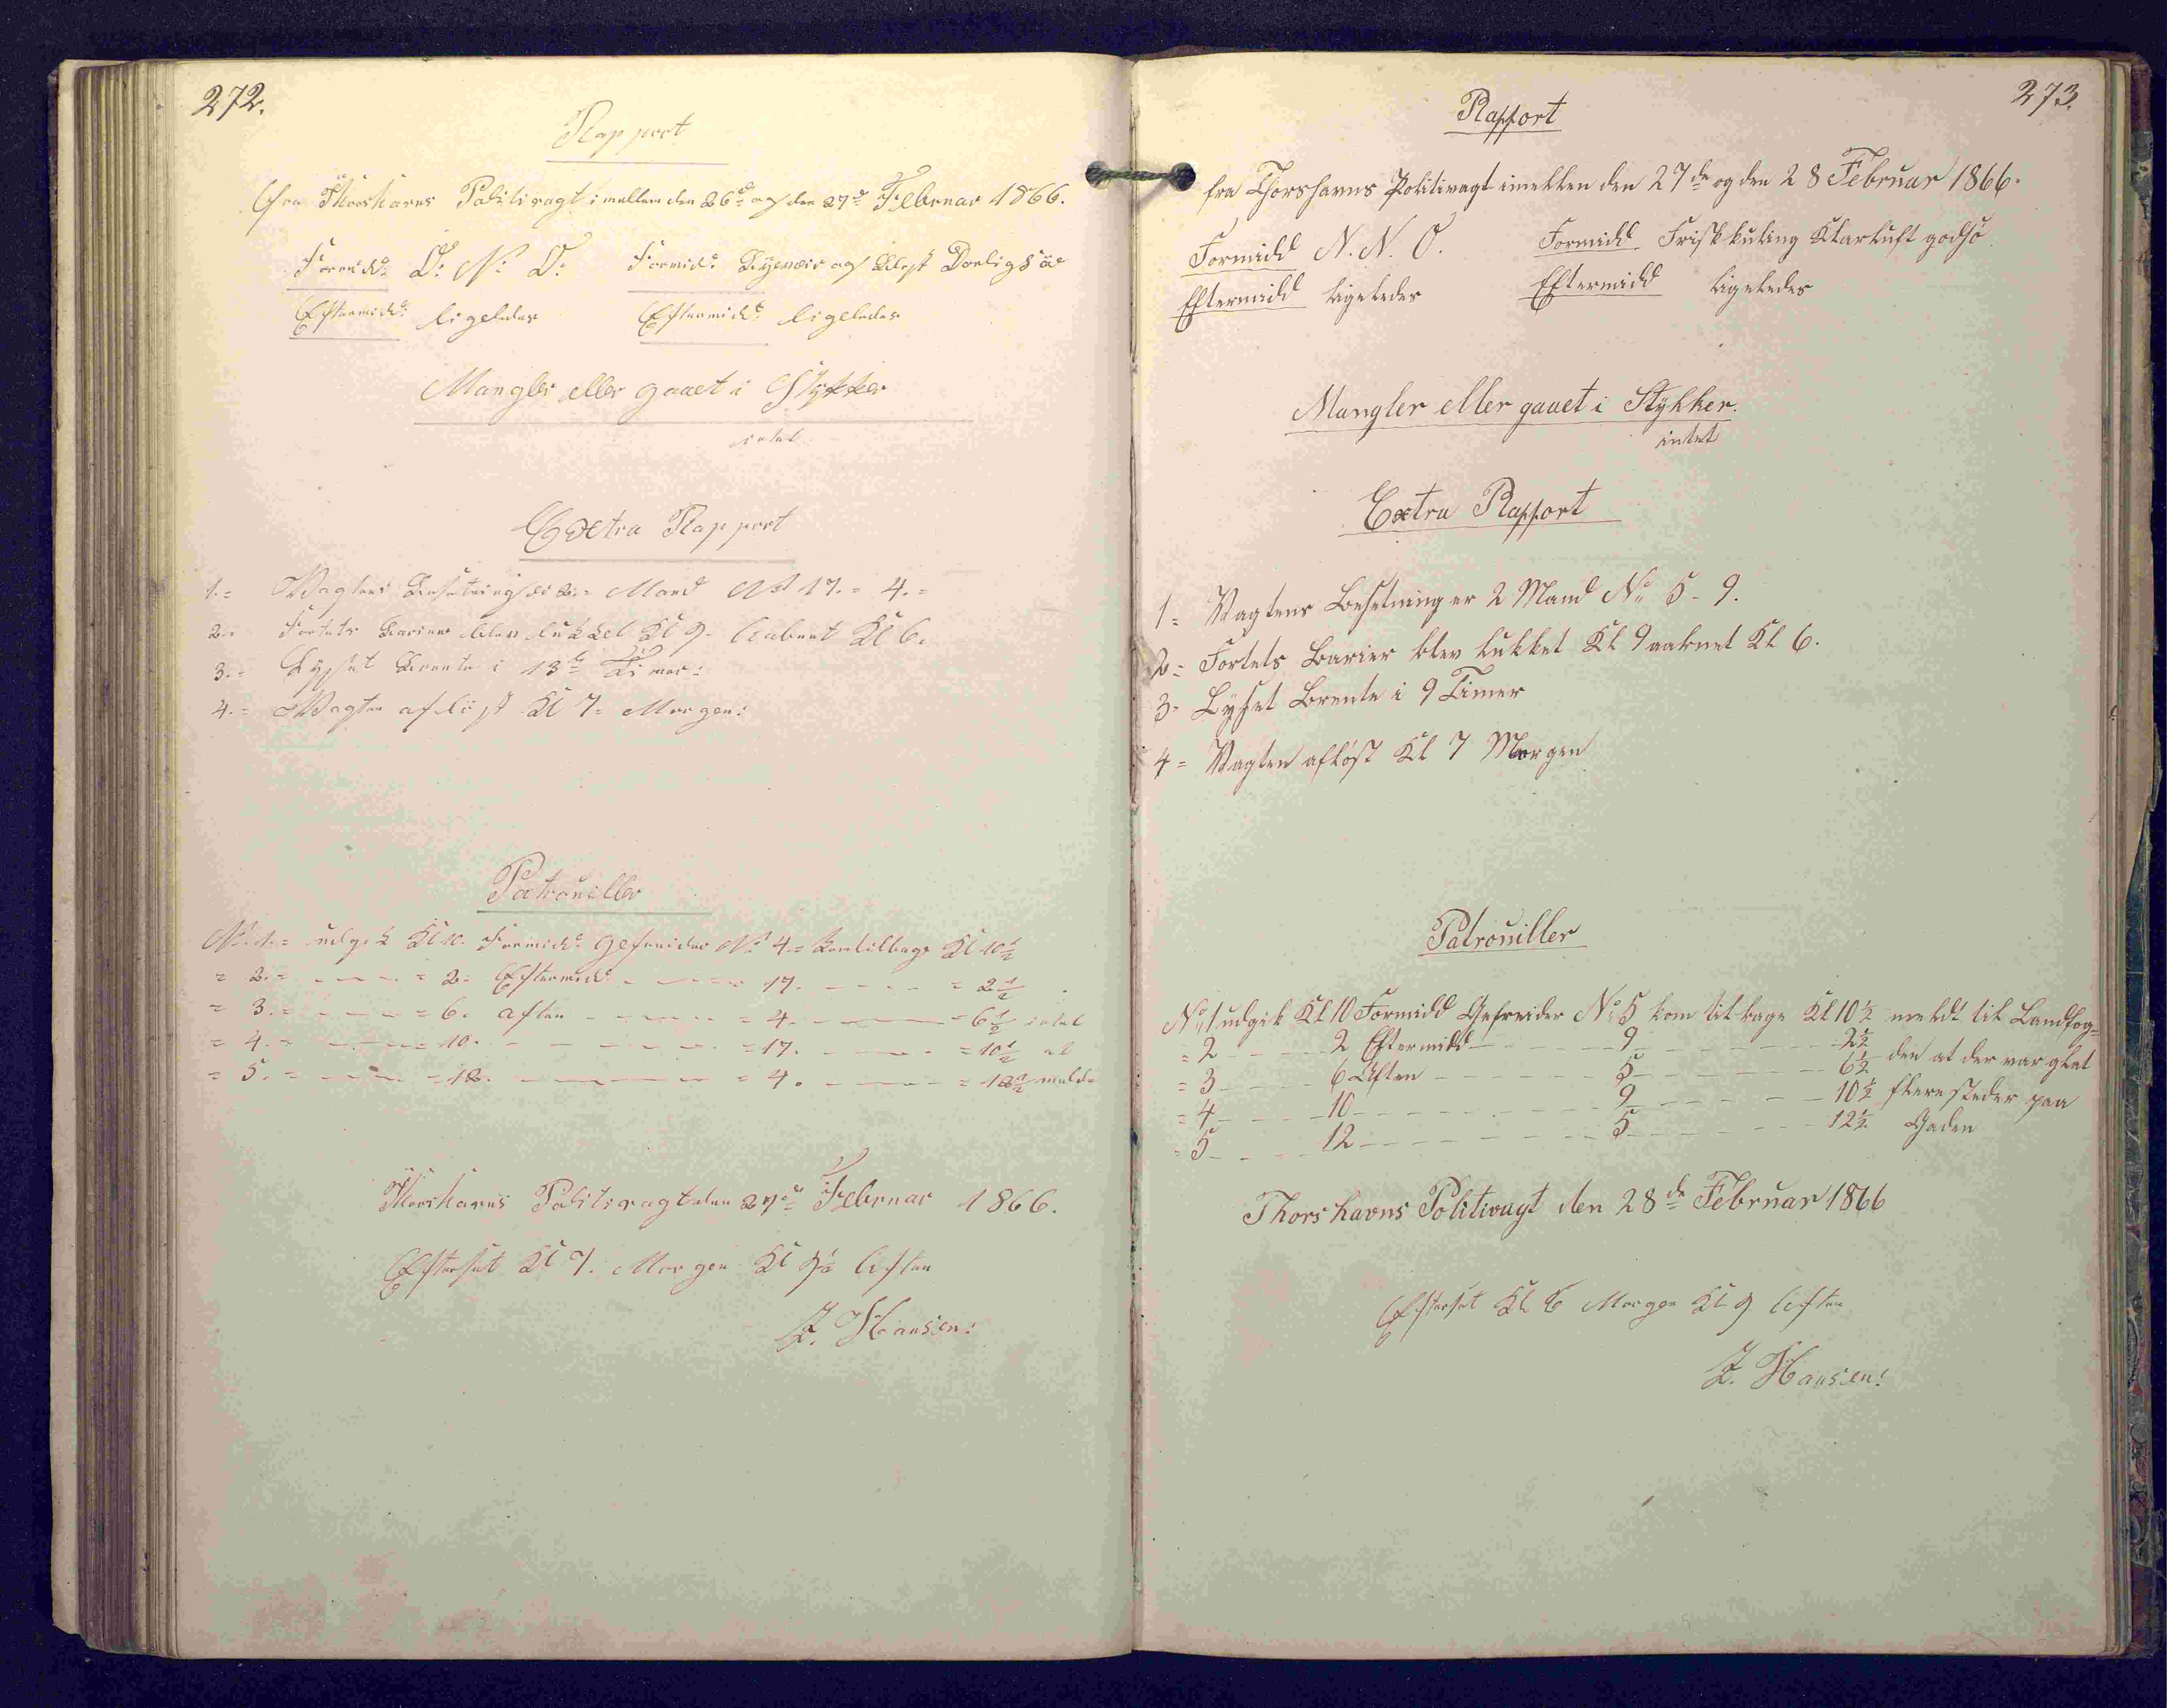 272.
Rapport
fra Thorshavns Politivagt imellem den 26de og den 27de Februar 1866.
Formidd: O: N: O: Formidd: og Blæst Daarlig Söe
Eftermidd: ligeledes Eftermidd: ligeledes
Mangler eller gaaet i Stykker
intet
Extra Rapport
1.= Vagtens Besetning er 2.= Mand No 17. = 4. =
2.= Fortets Barier blev lukket Kl 9. aabnet Kl 6.
3.= Lyset Brente i 13 Timer:
4.= Vagten aflöst Kl 7= Morgen:
Patrouiller
No. 1.= udgik Kl 10. Formidd: Gefreider No 4.= kom tilbage Kl 10½
= 2.= - - - = 2= Eftermidd: - - - 17. - - - = 2½
= 3.= - - - = 6. aften - - - = 4. - - - = 6½ intet
= 4.= - - - = 10. - - - = 17. - - - = 10½ at
= 5.= - - - = 12. - - - = 4. - - - = 12½ melde
Thorshavns Politivagt den 27de Februar 1866.
Efterset Kl 7. Morgen Kl 9= Aften
J. Hansen:
273.
Rapport
fra Thorshavns Politivagt imellem den 27de og den 28 Februar 1866.
Formidd N. N. O. Formidd Friskkuling Klarluft godsö
Eftermidd ligeledes Eftermidd ligeledes
Mangler eller gaaet i Stykker.
intet
Extra Rapport
1= Vagtens Besetning er 2 Mand No 5 - 9.
2= Fortets Barier blev lukket Kl 9 aabnet Kl 6.
3= Lyset Brente i 9 Timer
4= Vagten aflöst Kl 7 Morgen
Patrouiller
No 1 udgik Kl 10 Formidd Gefreider No 5 kom tilbage Kl 10½ meldt til Landfog=
= 2 - - - 2 Eftermidd - - - 9 - - - 2½ den at der var glat
= 3 - - - 6 Aften - - - 5 - - - 6½ flere steder paa
= 4 - - - 10 - - - 9 - - - 10½ Gaden
= 5 - - - 12 - - - 5 - - - 12½
Thorshavns Politivagt den 28de Februar 1866
Efterset Kl 6 Morgen Kl 9 Aften
J. Hansen: